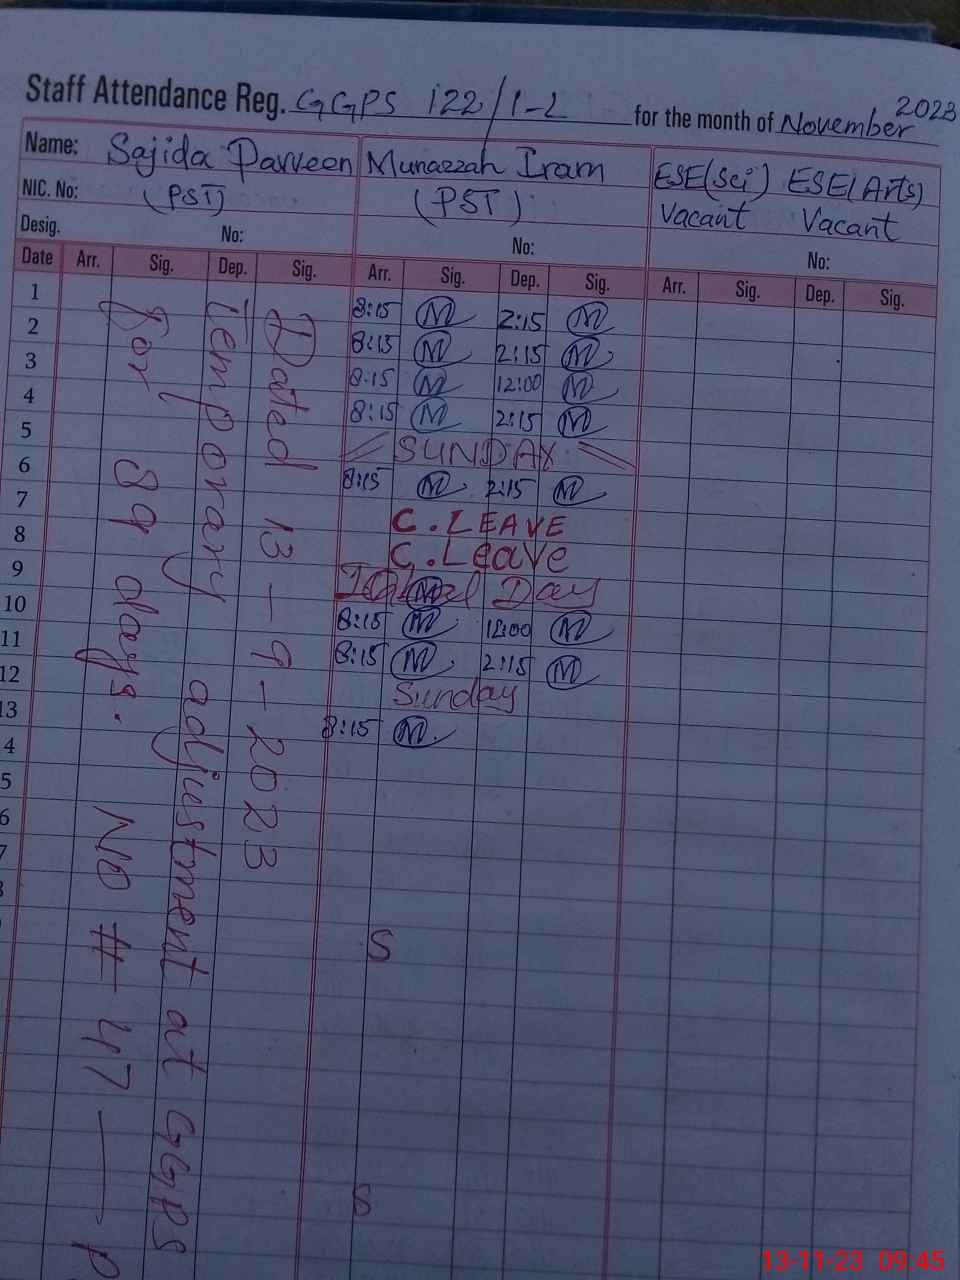 Staff Attendance Reg. GGPS 122/1-L for the month of November 2023
Name: Sajida Parveen Munazzah Iram ESE(Sci) ESE(Arts)
NIC. No: (PST) (PST) Vacant Vacant
Desig. No: No: No:
Date Arr. Sig. Dep. Sig. Arr. Sig. Dep. Sig. Arr. Sig. Dep. Sig.
1 8:15 M 2:15 M
2 8:15 M 2:15 M
3 8:15 M 12:00 M
4 8:15 M 2:15 M
5 SUNDAY
6 8:15 M 2:15 M
7 C.LEAVE
8 C.Leave
9 Day
10 8:15 M 12:00 M
11 8:15 M 2:15 M
12 Sunday
13 8:15 M
4
5
6
7
8
S
S
Dated 13-9-2023
Temporary adjustment at GGPS
for 89 days. No # 47 — P
13-11-23 09:45